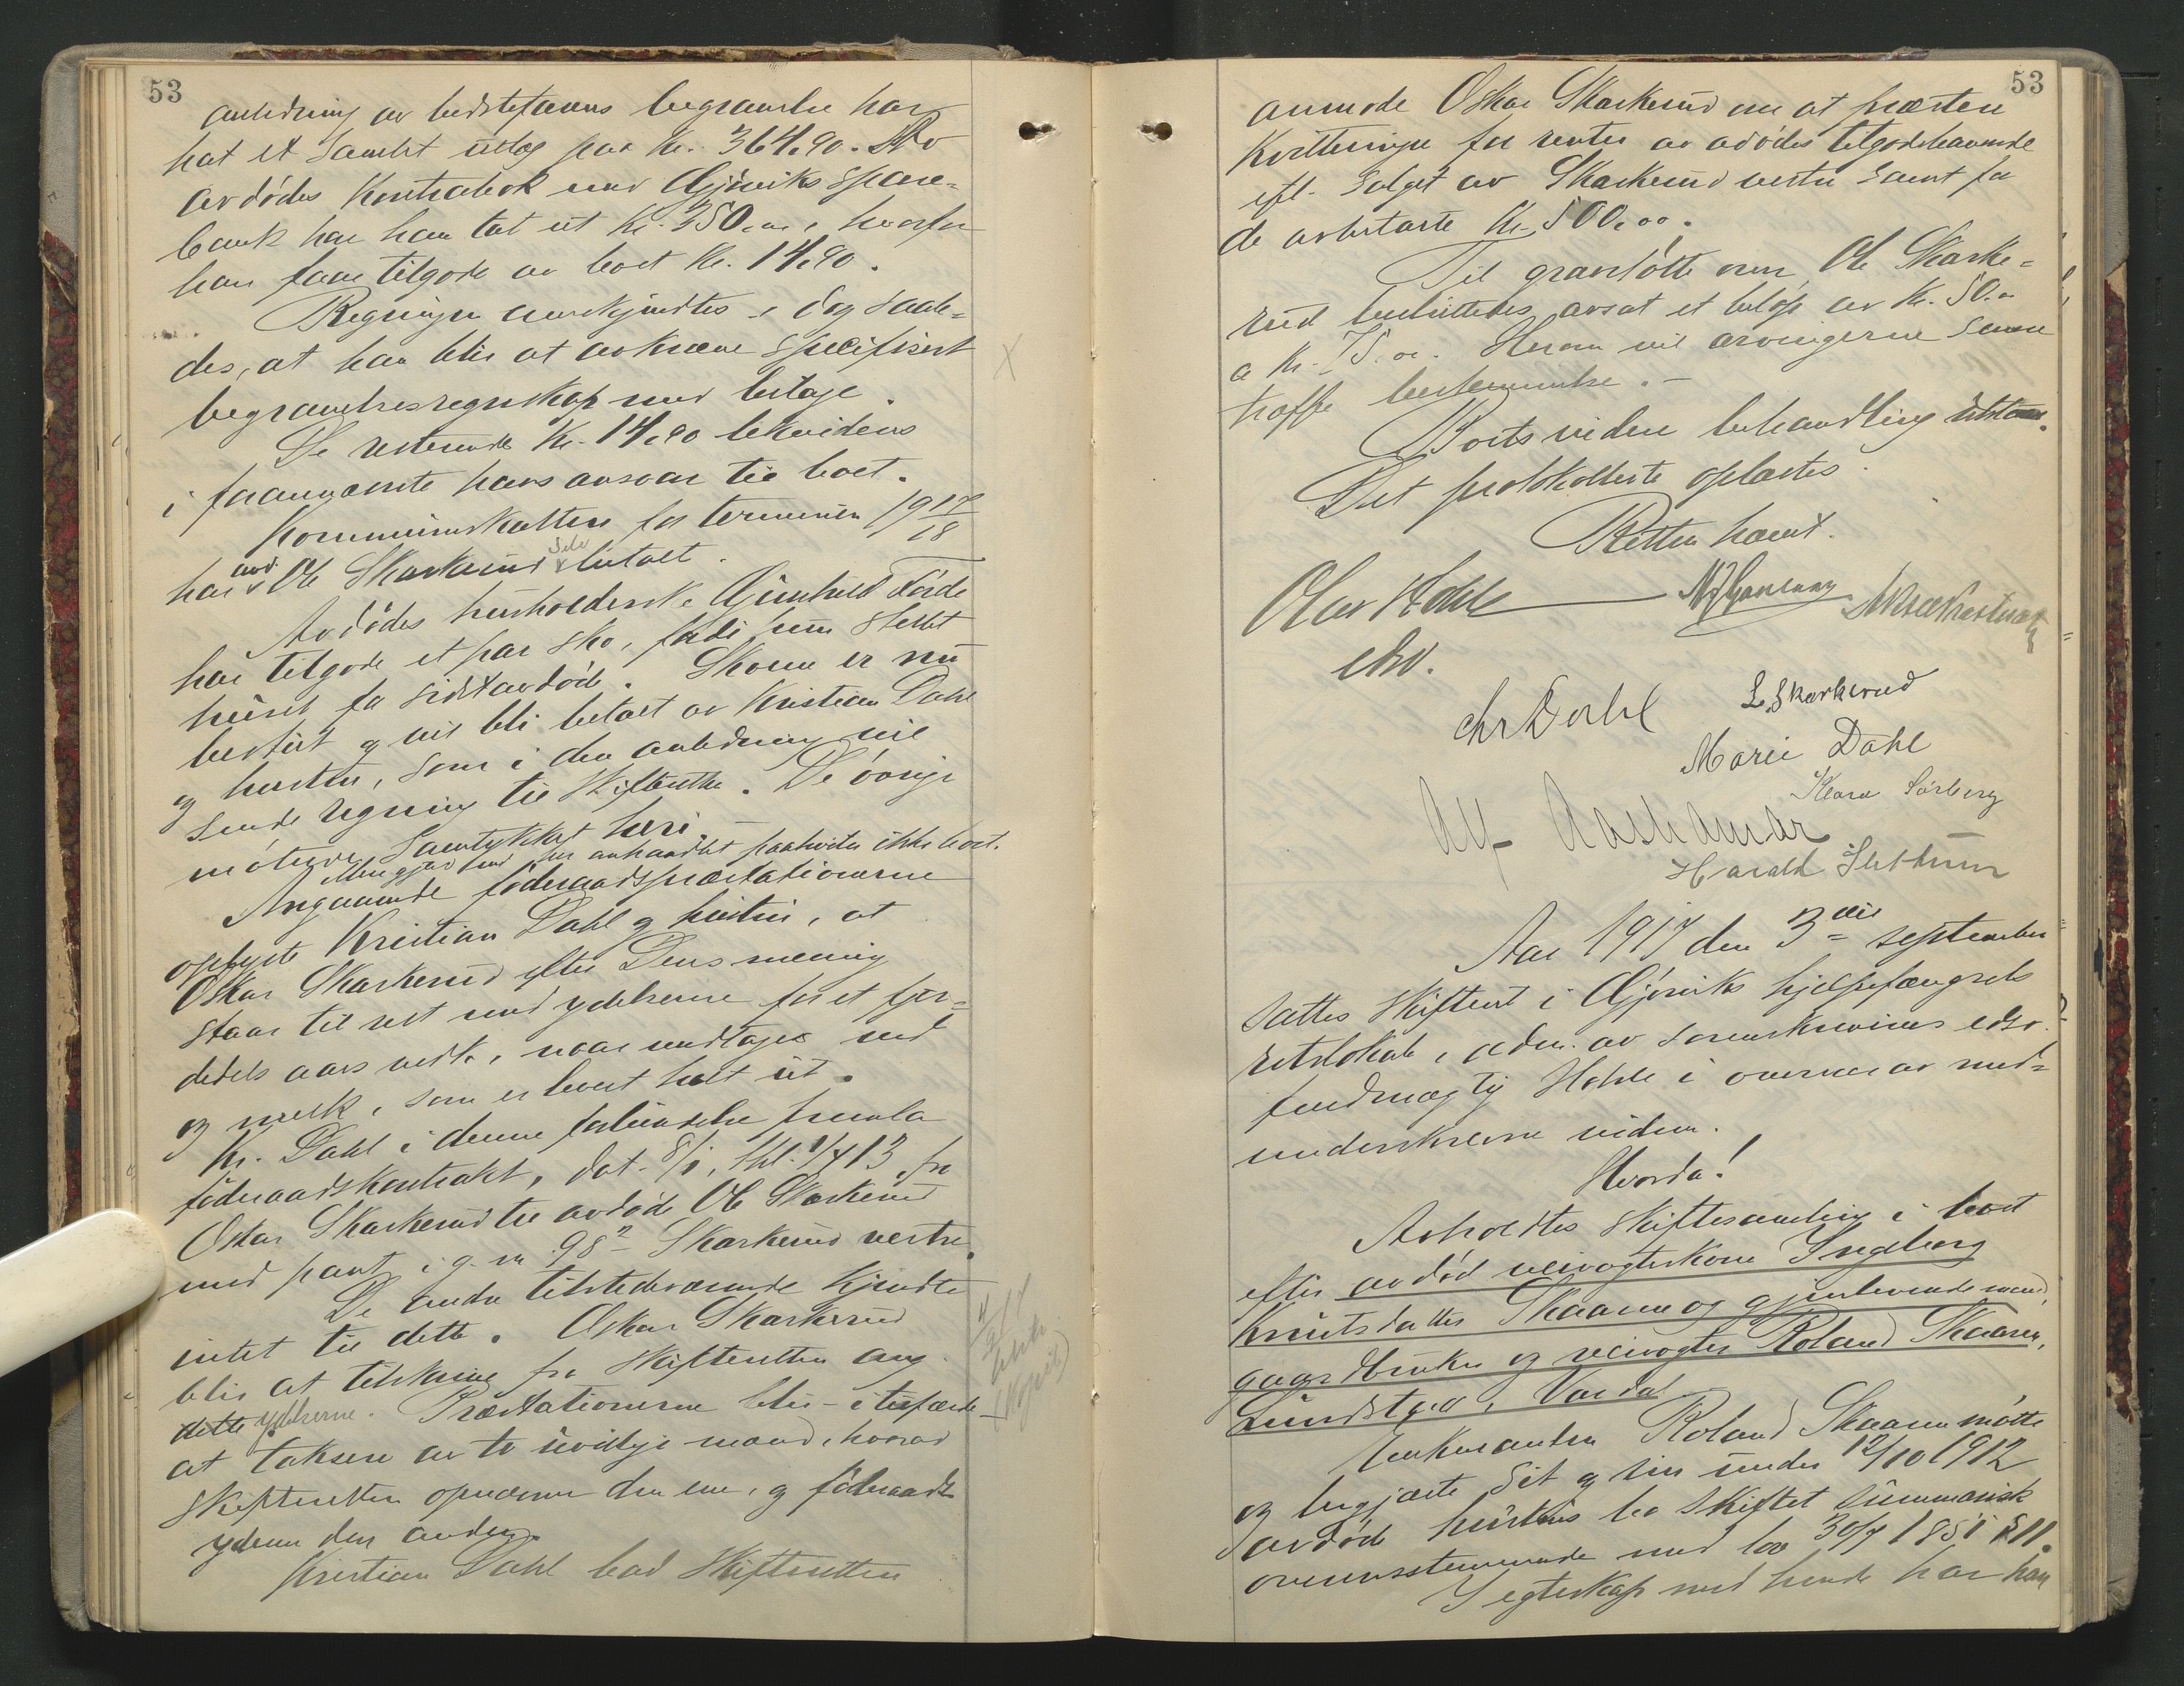 53
anledning av bedstefarens begravelse har
hat et samlet utlæg paa kr. 364,90. Av
avdødes kontrabok med Gjøviks Spare-
bank har han tat ut kr. 350,00, hvorfor
han faar tilgode av boet kr. 14,90.
Regningen anerkjendtes i dag saale-
des, at han blir at avkræve specifisert
begravelsesregnskap med bilage.
De resterende kr. 14,90 likvideres
i hans ansvar til boet.
Kommuneskatten for terminen 1917/18
har avd. Ole Skarkerud selv betalt.
Avdødes husholderske Gunhild
har tilgode et par sko, fordi hun stellet
huset for sidstavdøde. Skoene er nu
bestilt og vil bli betalt av Kristian Dahl
og hustru, som i den anledning vil
sende regning til skifteretten. De øvrige
møtende samtykket heri.
paahviler ikke boet.
Angaaende føderaadspræstationerne
oplyste Kristian Dahl og hustru, at
Oskar Skarkerud efter Deres mening
staar til rest med ydelserne for et fjer-
dedels aars vedk., naar undtages ved
og melk, som er levert helt ut.
Kr. Dahl i denne forbindelse fremla
føderaadskontrakt, dat. 8/1, thl. 1/4 13 fra
Oskar Skarkerud til avdøde Ole Skarkerud
med pant i g. nr. 98 Skarkerud vestre.
De andre tilstedeværende kjendte
intet til dette. Oskar Skarkerud
blir at tilskrive fra skifteretten ang.
dette ydelserne. Præstationerne blir i tilfælde
at taksere av to uvillige mænd, hvorav
skifteretten opnævner den ene, og føderaads-
yderen den anden.
Kristian Dahl bad skifteretten
53
anmode Oskar Skarkerud om at præstere
kvitteringer for renter av avdødes tilgodehavende
eft. salget av Skarkerud vestre samt for
de avbetalte kr. 500,00.
Til gravstøtte over Ole Skarke-
rud besluttedes avsat et beløp av kr. 50,00
a kr. 75,00. Herom vil arvingerne senere
træffe bestemmelse.-
Boets videre behandling utstaar.
Det protokollerte oplæstes.
Retten hævet.
Olav Hohle
edsv.
Chr Dahl
L. Skarkerud
Marie Dahl
Klara Sørberg
Alf Aashamar
Harald
Aar 1917 den 3die september
sattes skifteret i Gjøviks hjelpefængsels
retslokale, adm. av sorenskriverens edsv.
fuldmægtig Hohle i overvær av med-
underskrevne vidner.
Hvorda!
Avholdtes skiftesamling i boet
efter avdød veivogterkone Ingeborg
Knutsdatter Skaaren og gjenlevende mand,
gaardbruker og veivogter Roland Skaaren,
Lundstad, Vardal
Enkemanden Roland Skaaren møtte
og begjærte sit og sin under 12/10 1912
avdøde hustrus bo skiftet summarisk
overensstemmende med lov 30/7 1851 § 11.
I egteskap med hende har han